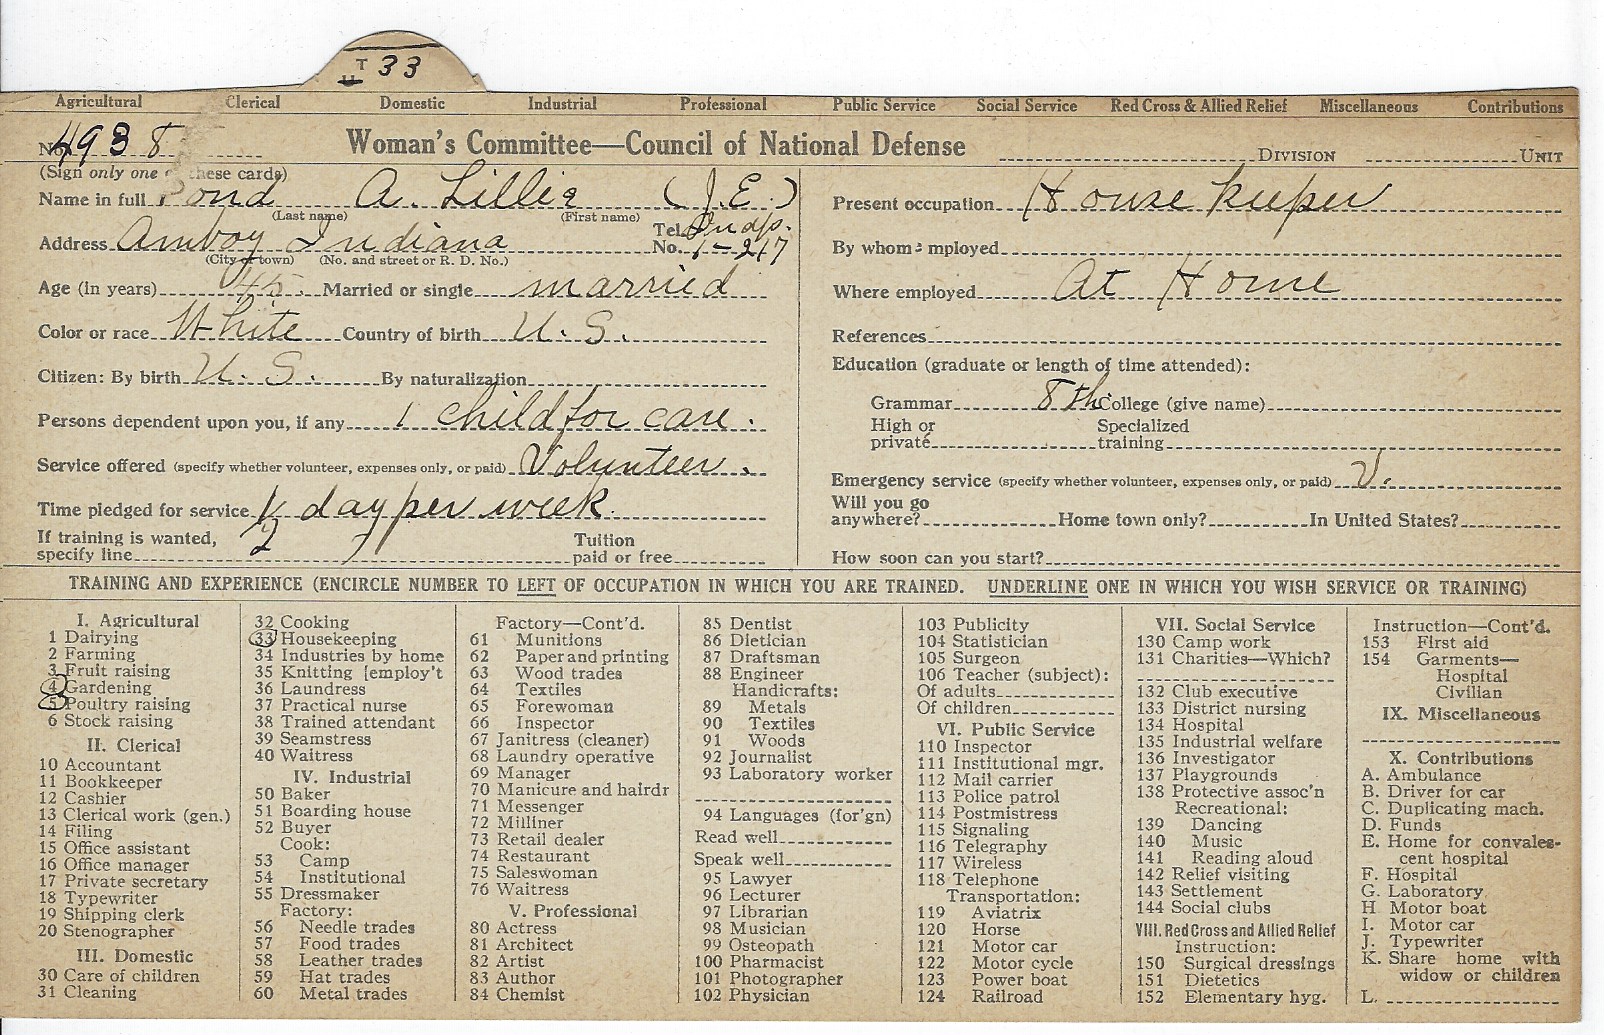 T 33
Agricultural Clerical Domestic Industrial Professional Public Service Social Service Red Cross & Allied Relief Miscellaneous Contributions
No. 4938 Woman's Committee—Council of National Defense DIVISION UNIT
(Sign only one these cards)
Name in full Pond A. Lillie (J.E.)
(Last name) (First name)
Address Amboy Indiana Tel. No. Indp. 1-217
(City or town) (No. and street or R. D. No.)
Age (in years) 45. Married or single married
Color or race White Country of birth U. S.
Citizen: By birth U. S. By naturalization
Persons dependent upon you, if any 1 child for care.
Service offered (specify whether volunteer, expenses only, or paid) Volunteer.
Time pledged for service 1/2 day per week.
If training is wanted, specify line Tuition paid or free
Present occupation House keeper
By whom employed
Where employed At Home
References
Education (graduate or length of time attended):
Grammar 8th College (give name)
High or private Specialized training
Emergency service (specify whether volunteer, expenses only, or paid) V.
Will you go anywhere? Home town only? In United States?
How soon can you start?
TRAINING AND EXPERIENCE (ENCIRCLE NUMBER TO LEFT OF OCCUPATION IN WHICH YOU ARE TRAINED. UNDERLINE ONE IN WHICH YOU WISH SERVICE OR TRAINING)
I. Agricultural
1 Dairying
2 Farming
3 Fruit raising
4 Gardening
5 Poultry raising
6 Stock raising
II. Clerical
10 Accountant
11 Bookkeeper
12 Cashier
13 Clerical work (gen.)
14 Filing
15 Office assistant
16 Office manager
17 Private secretary
18 Typewriter
19 Shipping clerk
20 Stenographer
III. Domestic
30 Care of children
31 Cleaning
32 Cooking
33 Housekeeping
34 Industries by home
35 Knitting [employ't
36 Laundress
37 Practical nurse
38 Trained attendant
39 Seamstress
40 Waitress
IV. Industrial
50 Baker
51 Boarding house
52 Buyer
Cook:
53 Camp
54 Institutional
55 Dressmaker
Factory:
56 Needle trades
57 Food trades
58 Leather trades
59 Hat trades
60 Metal trades
Factory—Cont'd.
61 Munitions
62 Paper and printing
63 Wood trades
64 Textiles
65 Forewoman
66 Inspector
67 Janitress (cleaner)
68 Laundry operative
69 Manager
70 Manicure and hairdr
71 Messenger
72 Milliner
73 Retail dealer
74 Restaurant
75 Saleswoman
76 Waitress
V. Professional
80 Actress
81 Architect
82 Artist
83 Author
84 Chemist
85 Dentist
86 Dietician
87 Draftsman
88 Engineer
Handicrafts:
89 Metals
90 Textiles
91 Woods
92 Journalist
93 Laboratory worker
94 Languages (for'gn)
Read well
Speak well
95 Lawyer
96 Lecturer
97 Librarian
98 Musician
99 Osteopath
100 Pharmacist
101 Photographer
102 Physician
103 Publicity
104 Statistician
105 Surgeon
106 Teacher (subject):
Of adults
Of children
VI. Public Service
110 Inspector
111 Institutional mgr.
112 Mail carrier
113 Police patrol
114 Postmistress
115 Signaling
116 Telegraphy
117 Wireless
118 Telephone
Transportation:
119 Aviatrix
120 Horse
121 Motor car
122 Motor cycle
123 Power boat
124 Railroad
VII. Social Service
130 Camp work
131 Charities—Which?
132 Club executive
133 District nursing
134 Hospital
135 Industrial welfare
136 Investigator
137 Playgrounds
138 Protective assoc'n
Recreational:
139 Dancing
140 Music
141 Reading aloud
142 Relief visiting
143 Settlement
144 Social clubs
VIII. Red Cross and Allied Relief
Instruction:
150 Surgical dressings
151 Dietetics
152 Elementary hyg.
Instruction—Cont'd.
153 First aid
154 Garments—
Hospital
Civilian
IX. Miscellaneous
X. Contributions
A. Ambulance
B. Driver for car
C. Duplicating mach.
D. Funds
E. Home for convales-
cent hospital
F. Hospital
G. Laboratory
H Motor boat
I. Motor car
J. Typewriter
K. Share home with
widow or children
L.